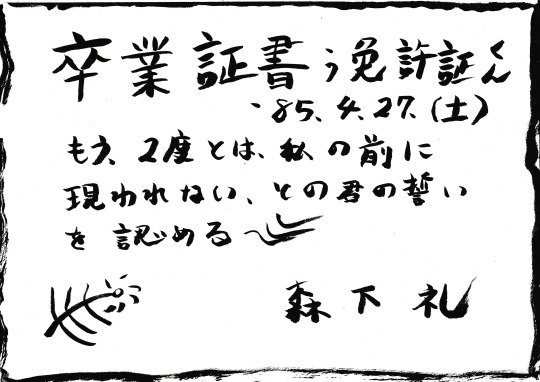 卒業証書;免許証くん
'85.4.27.(土)
もう、2度とは、私の前に
現われない、その君の誓い
を認める
森下礼